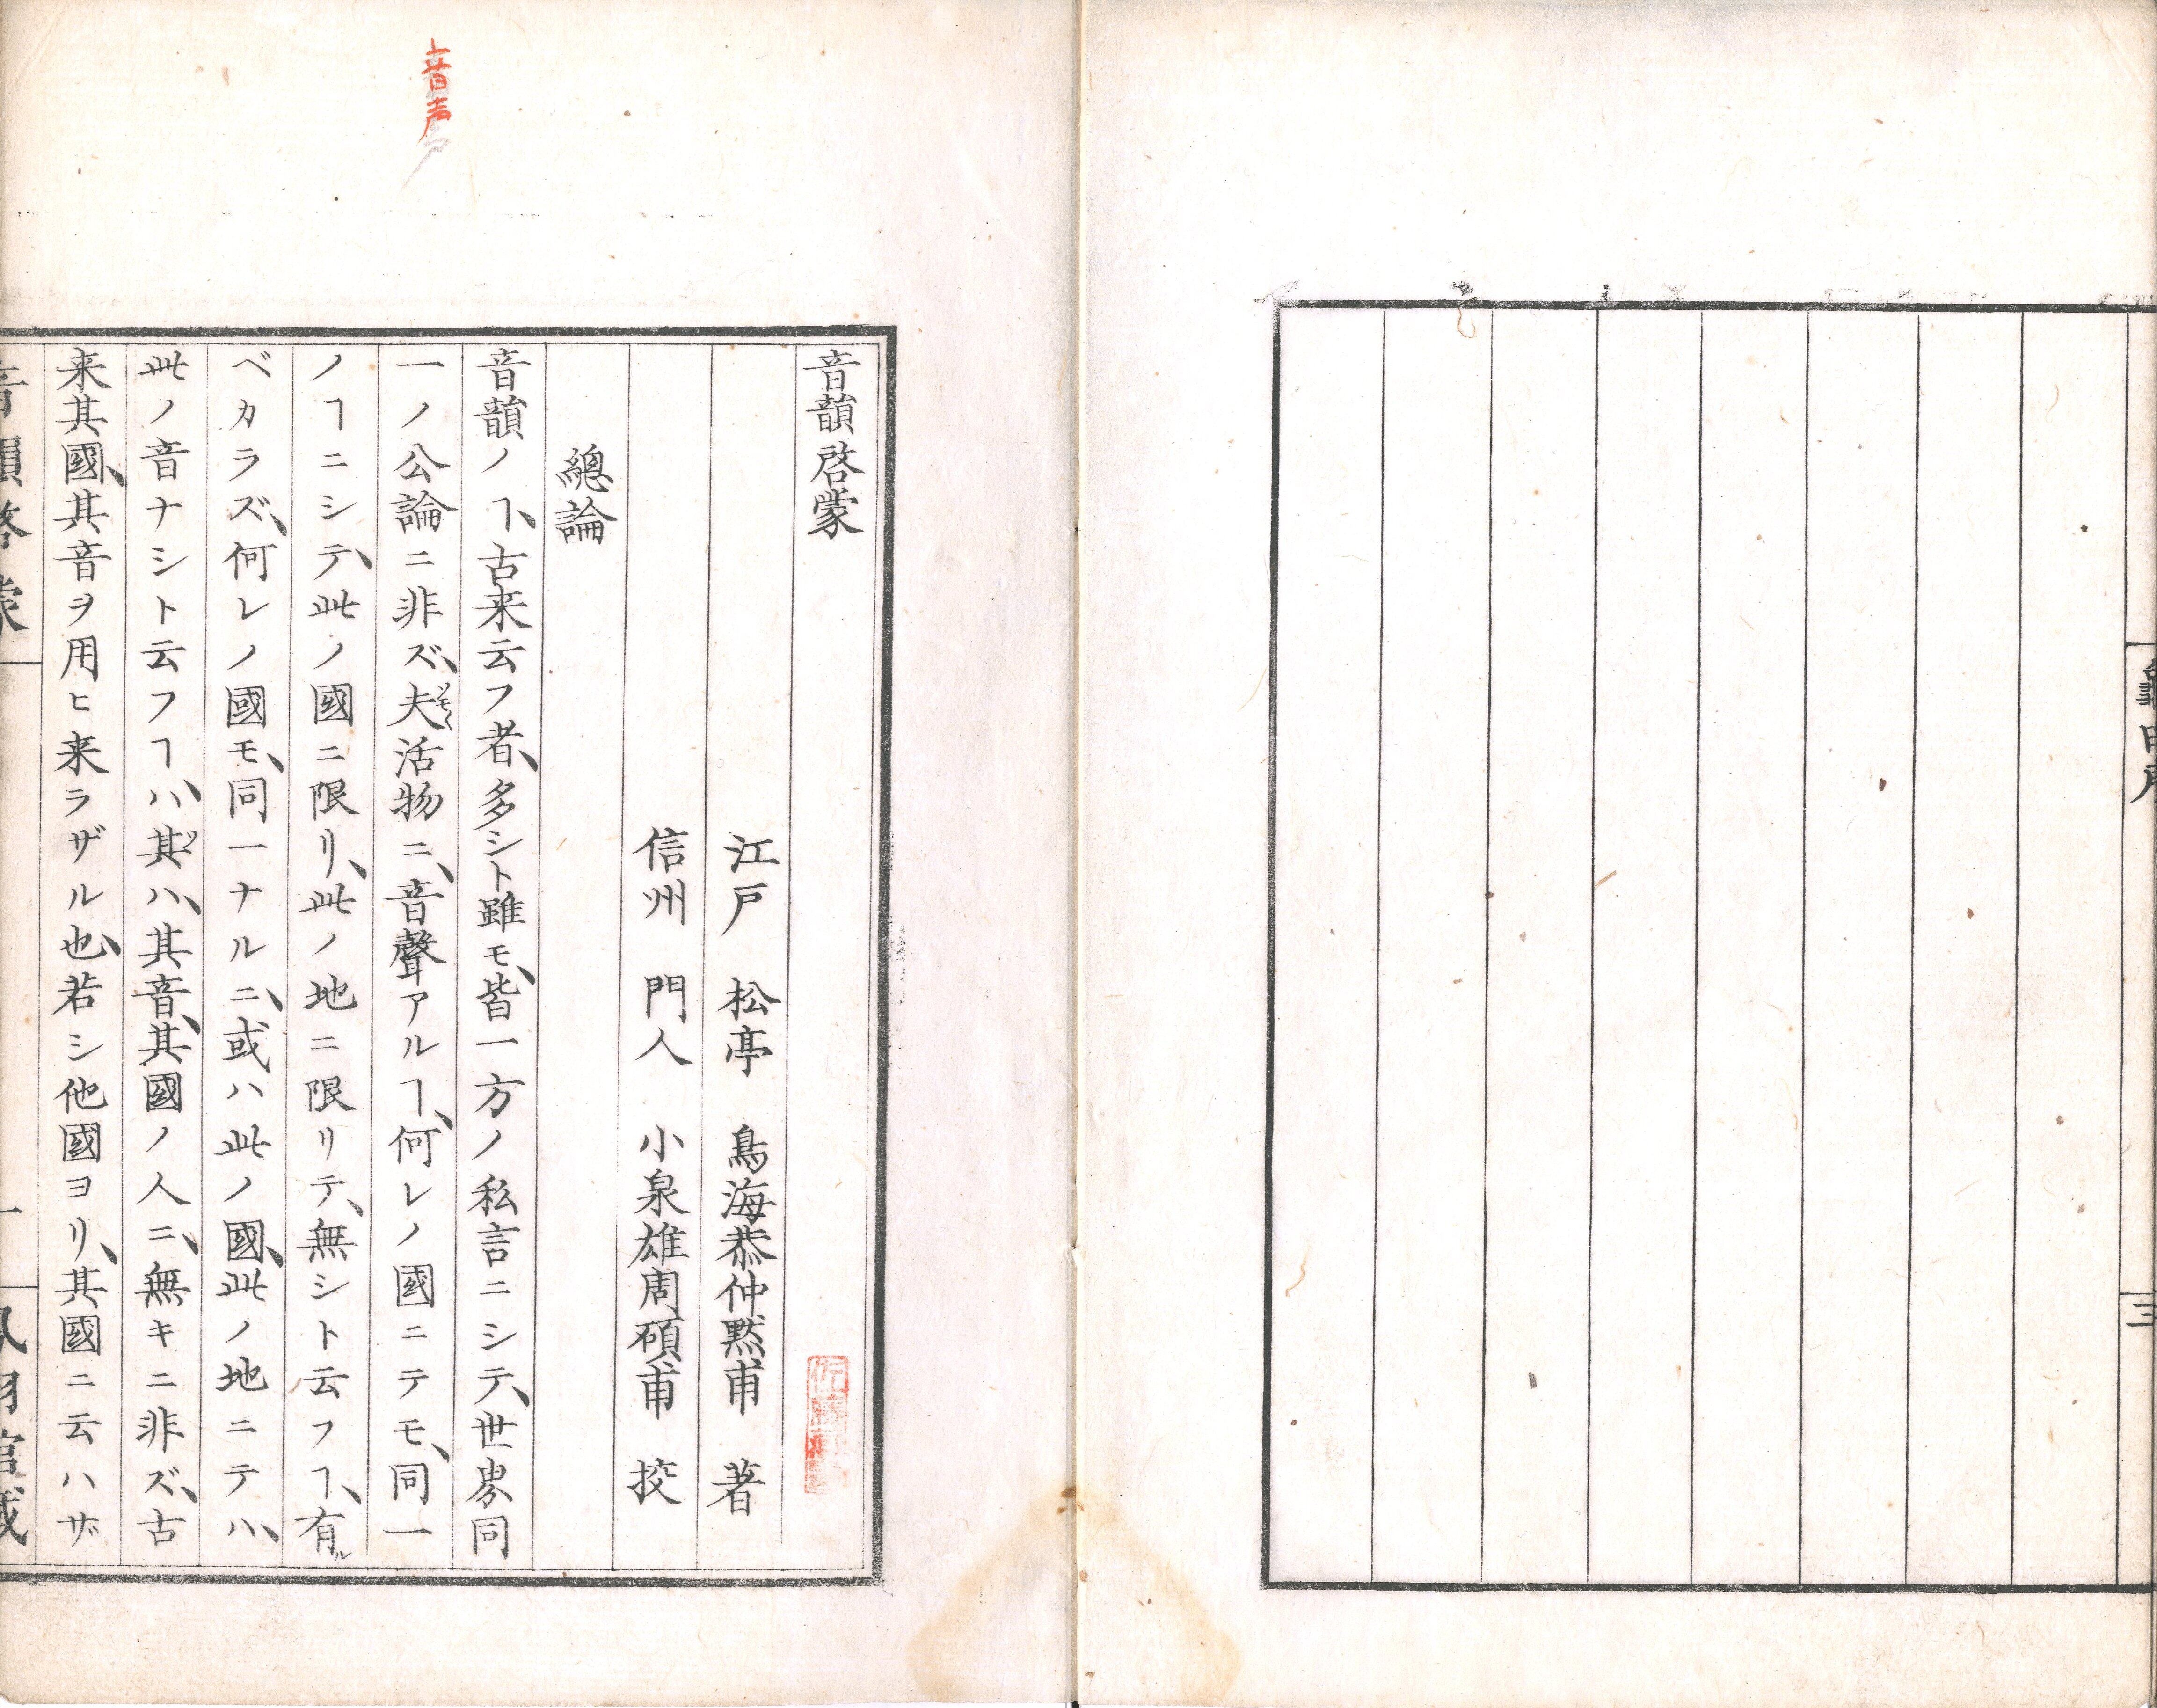 三
音韻啓蒙
江戸 松亭 鳥海恭仲黙甫 著
信州 門人 小泉雄周碩甫 挍
總論
音韻ノヿ、古来云フ者、多シト雖モ、皆一方ノ私言ニシテ、世界同
一ノ公論ニ非ズ、夫活物ニ、音聲アルヿ、何レノ國ニテモ、同一
ノヿニシテ、此ノ國ニ限リ、此ノ地ニ限リテ、無シト云フヿ、有ル
ベカラズ、何レノ國モ、同一ナルニ、或ハ此ノ國、此ノ地ニテハ、
此ノ音ナシト云フヿハ、其ハ、其音、其國ノ人ニ、無キニ非ズ、古
来其國、其音ヲ用ヒ来ラザル也、若シ他國ヨリ、其國ニ云ハザ
音韻啓蒙 一
音声